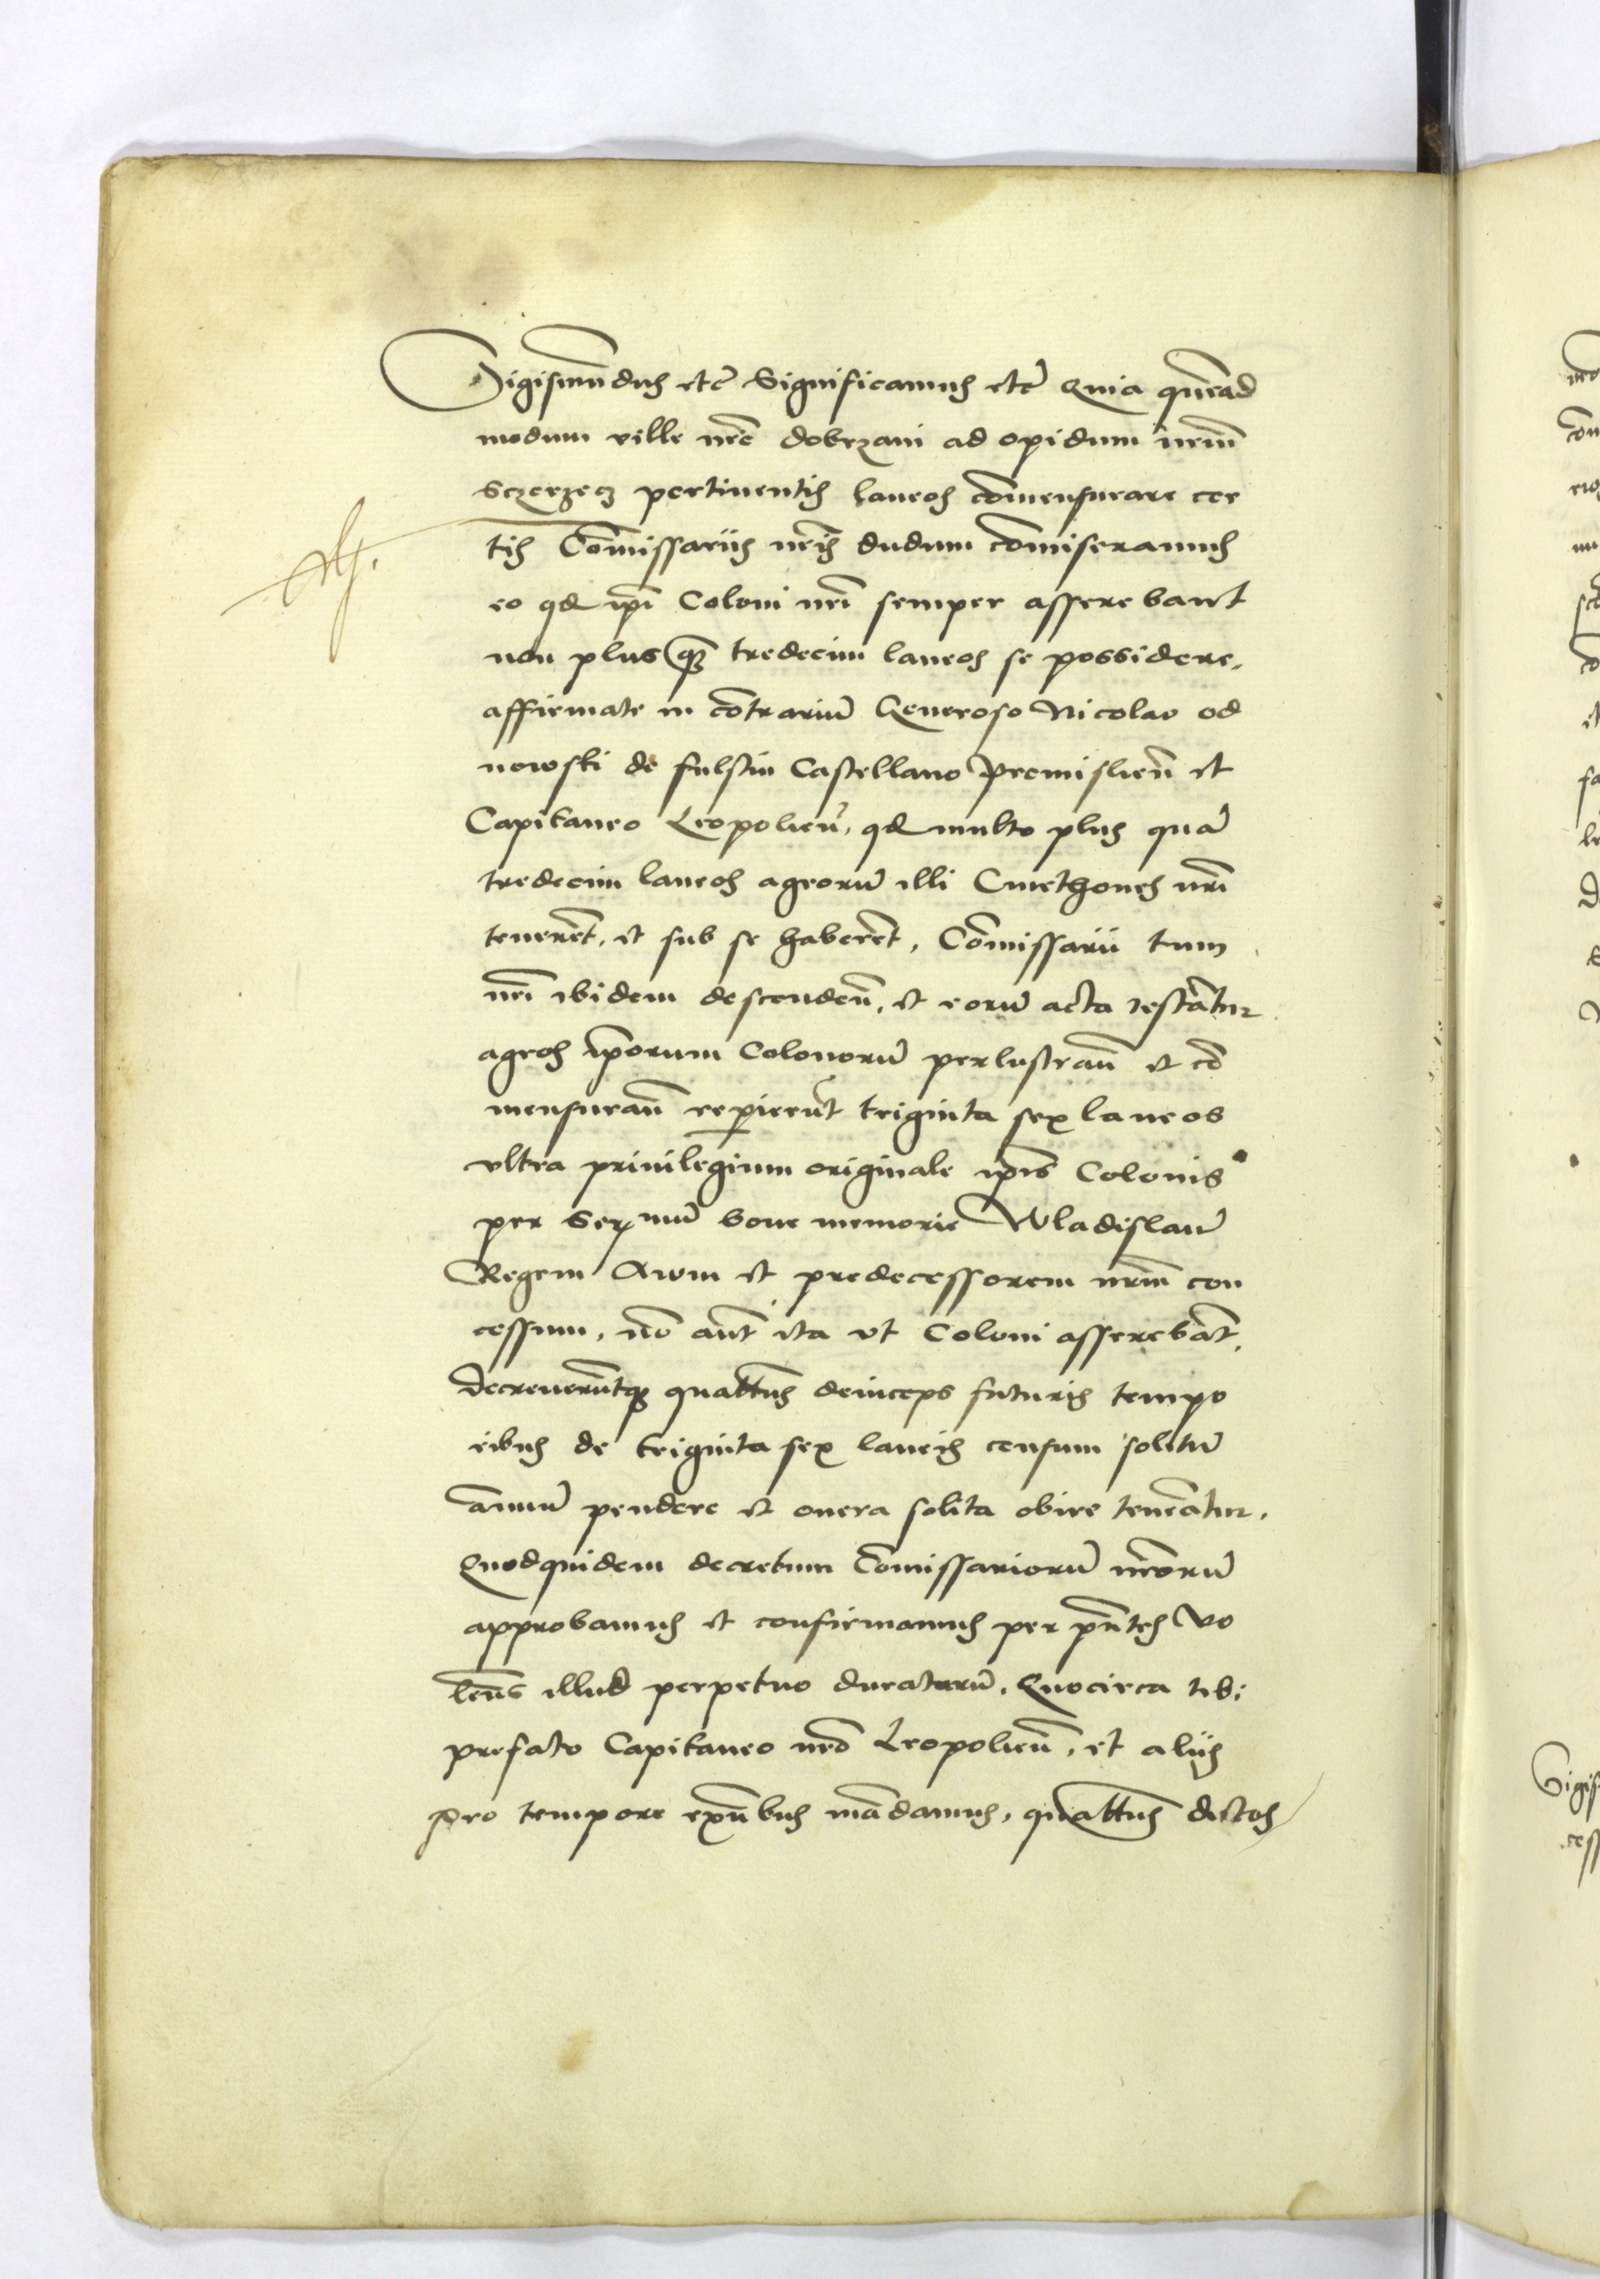 Sigismundus etc Significamus etc Quia quead
modum ville nre Dobrzani ad opidum nrm
Sczerzecz pertinentis laneos comensurare cer
tis Comissariis nris dudum comiseramus
eo qd ipi Coloni nri semper asserebant
non plus q tredecim laneos se possidere,
affirmate in contrariu Generoso Nicolao Od
nowski de Fulstin Castellano Premislien et
Capitaneo Leopolien, qd multo plus qua
tredecim laneos agroru illi Cmethones nri
teneret, et sub se haberet, Comissarii tum
nri ibidem descenden, et eoru acta testatur
agros iporum Colonoru perlustran et co
mensuran reperierut triginta sex laneos
ultra privilegium originale ipis Colonis
per Sermu bone memorie Wladislau
Regem Avum et predecessorem nrm con
cessum, no aut ita ut Coloni asserebat,
Decreverutq quattus deinceps futuris tempo
ribus de triginta sex laneis censum solitu
annuu pendere et onera solita obire teneatur.
Quodquidem decretum Comissarioru nroru
approbamus et confirmamus per pntes vo
lens illud perpetuo duraturu. Quocirca tibi
prefato Capitaneo nro Leopolien, et aliis
pro tempore exnbus madamus, quattus dictos